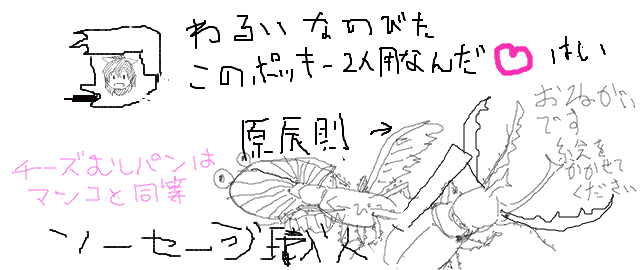 わるいなのびた
このポッキー2人用なんだ はい
原辰則
おねがい
です
絵を
かかせて
ください
チーズむしパンは
マンコと同等
ソーセージ